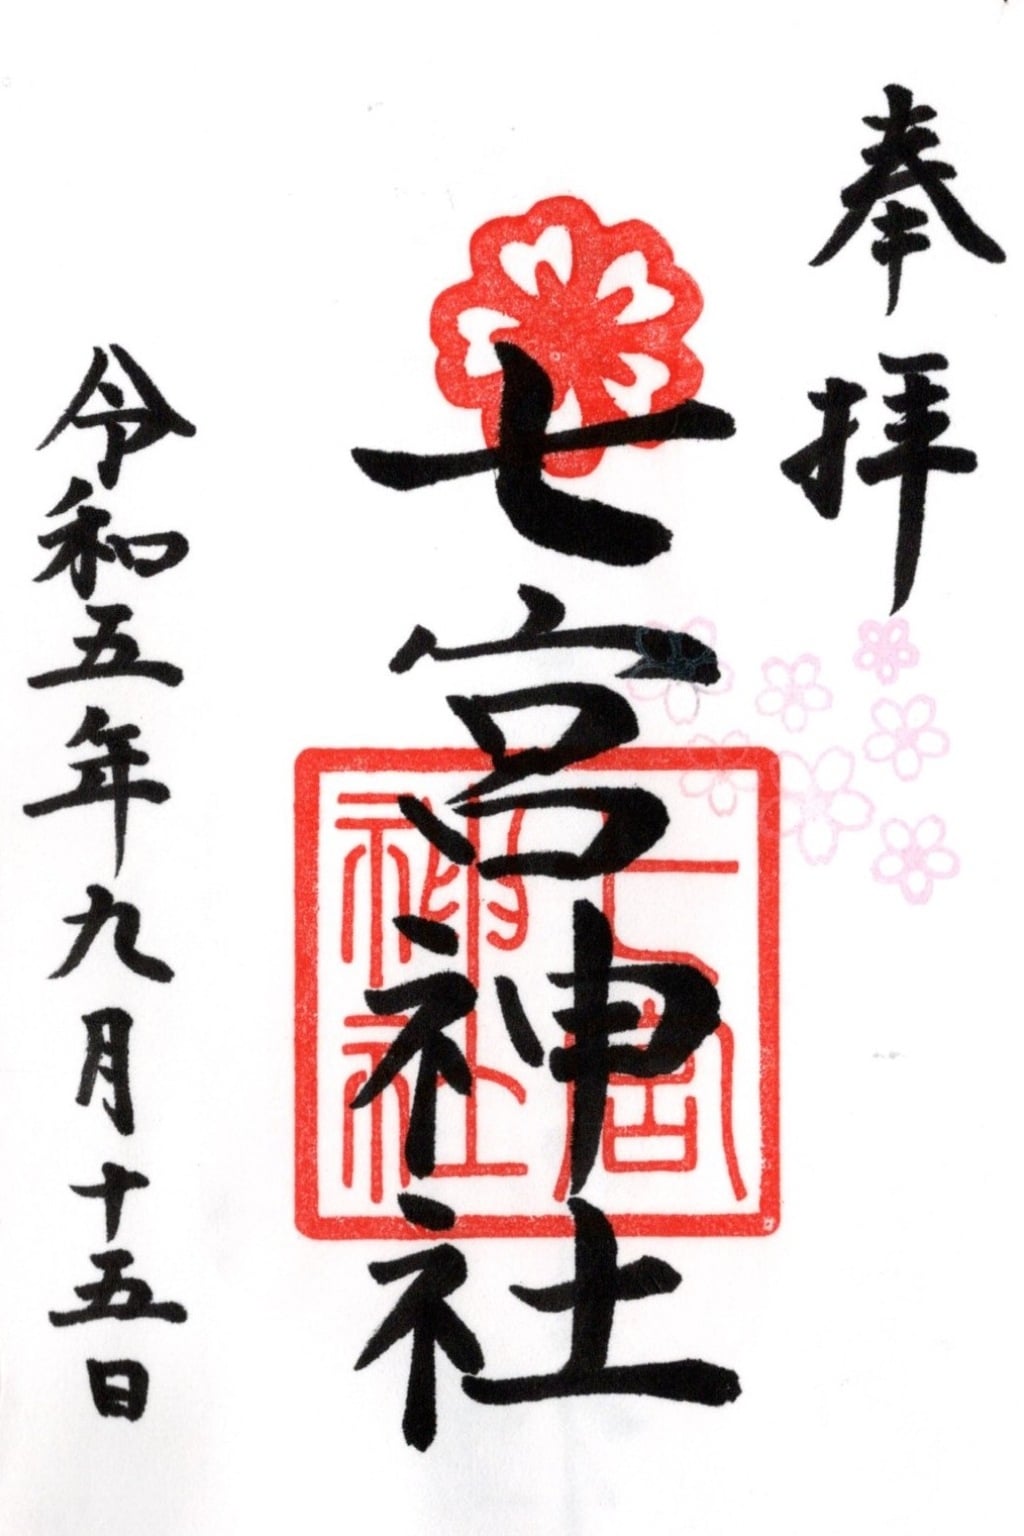 奉拝
七宮神社
七宮
神社
令和五年九月十五日